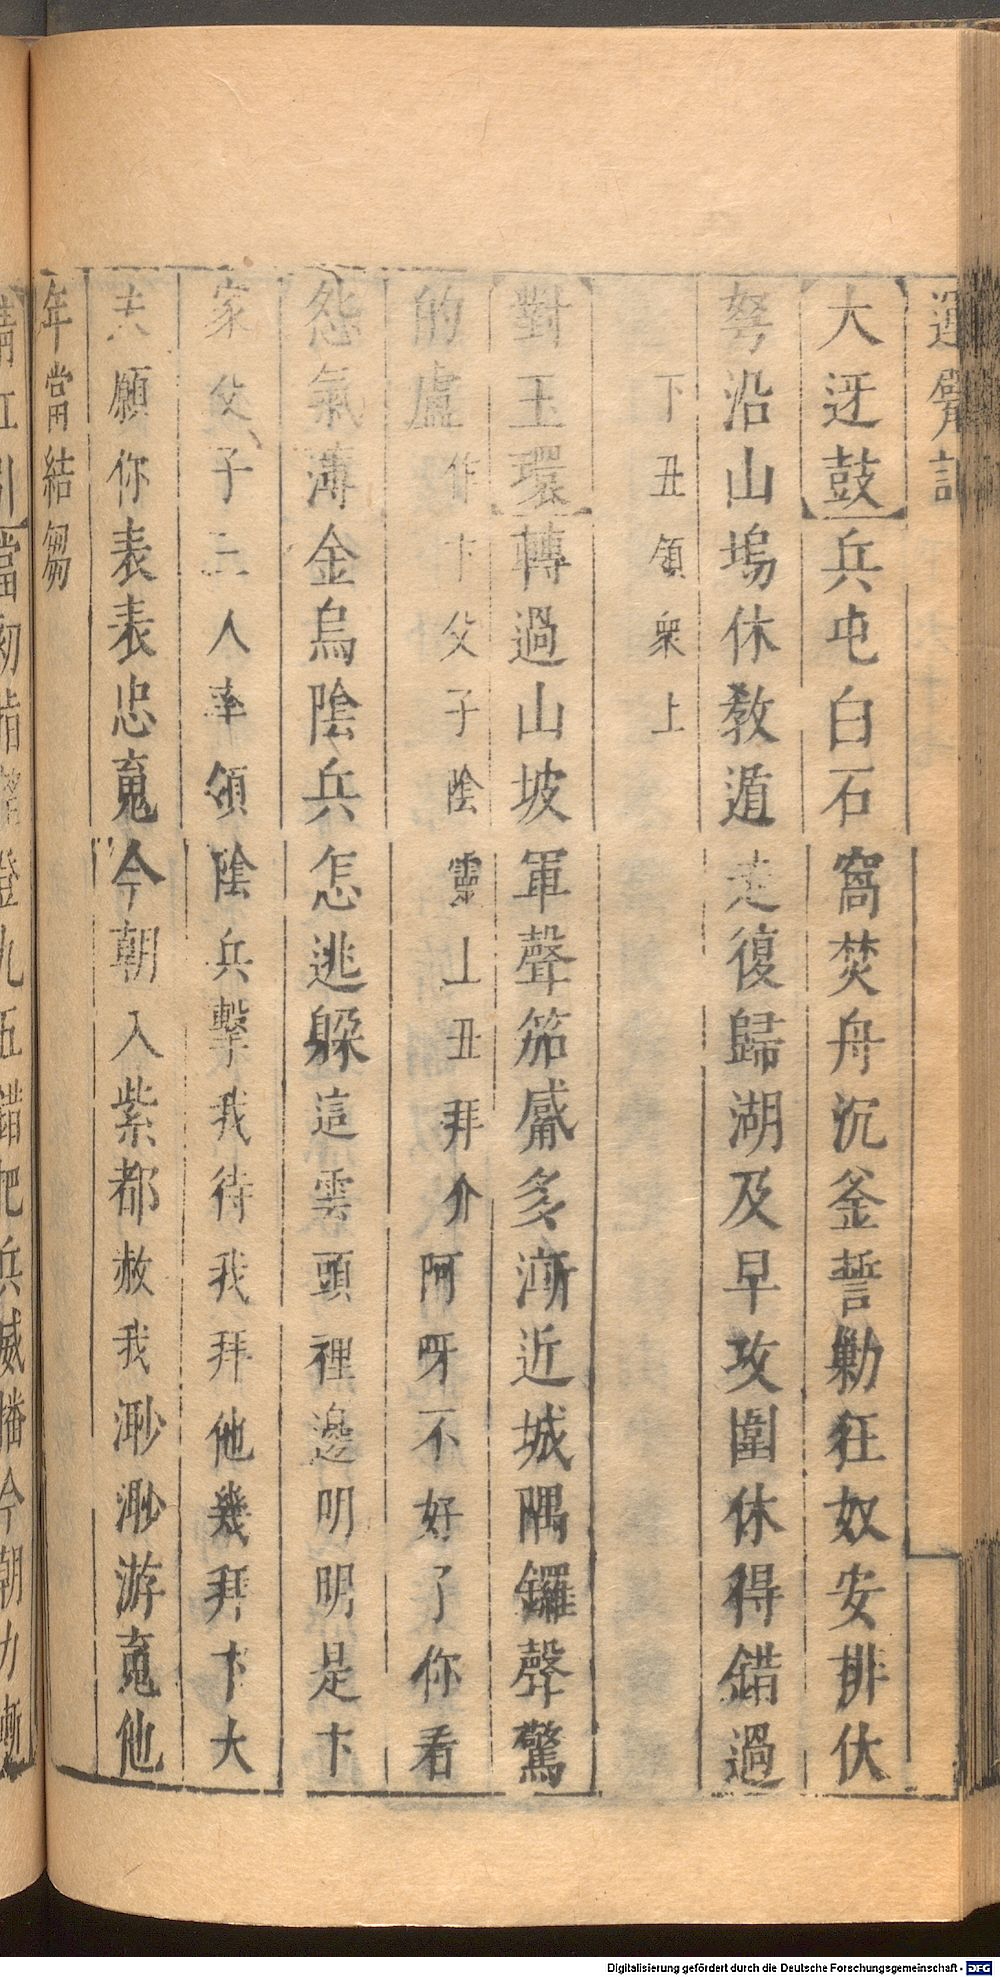 大迓鼓兵屯白石窩焚舟沉釜誓勦狂奴安排伏
弩沿山塢休教遁走復歸湖及早攻圍休得錯過
下丑領衆上
對玉環轉過山坡軍聲笳鼓多漸近城隅鑼聲驚
的盧作卞父子陰靈上丑拜介阿呀不好了你看
怨氣薄金烏陰兵怎逃躱這雲頭裡邊明明是卞
家父子三人率領陰兵擊我待我拜他幾拜卞大
夫願你表表忠䰟今朝入紫都赦我渺渺游䰟他
年當結芻
Digitalisierung gefördert durch die Deutsche Forschungsgemeinschaft - DFG